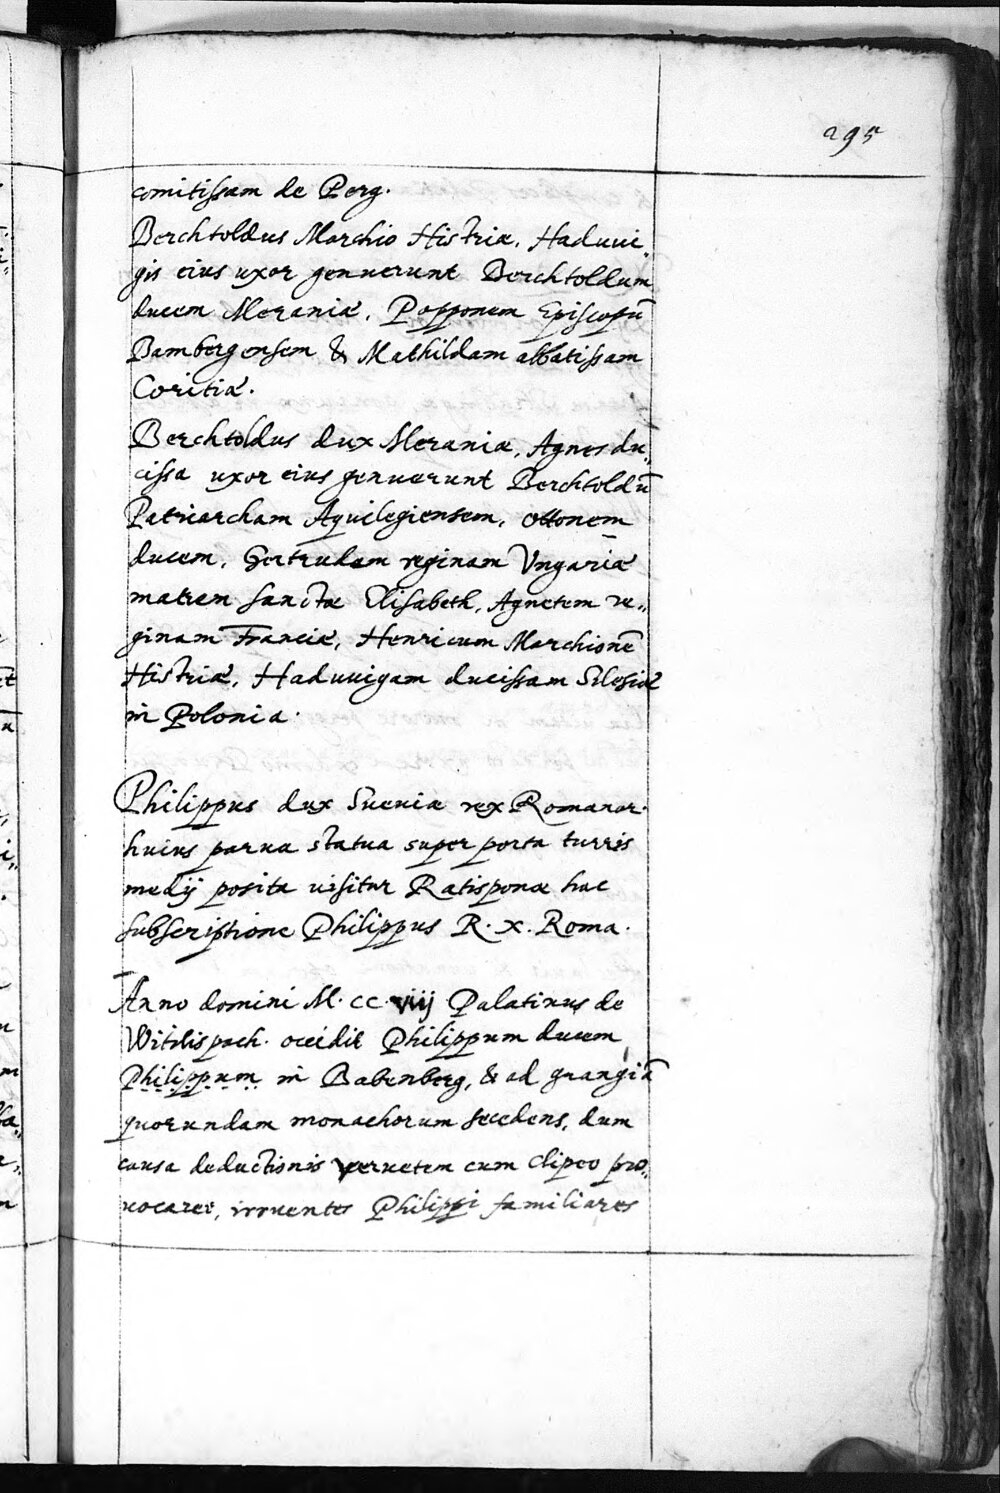 295
comitissam de Perg.
Berchtoldus Marchio Histriæ, Haduui„
gis eius uxor genuerunt Berchtoldum
ducem Meraniæ, Popponem Episcopū
Bambergensem & Mathildam abbatissam
Coritiæ.
Berchtoldus dux Meraniæ, Agnes du„
cissa uxor eius genuerunt Berchtoldū
Patriarcham Aquilegiensem, Ottonem
ducem, Gertrudam reginam Vngariæ
matrem sanctæ Elisabeth, Agnetem re„
ginam Franciæ, Henricum Marchionē
Histriæ, Haduuigam ducissam Silesiæ
in Polonia.
Philippus dux Sueuiæ rex Romanor.
huius parua statua super porta turris
medij posita uisitur Ratisponæ hac
subscriptione Philippus R. x. Roma.
Anno domini M. CC. viij Palatinus de
Witilispach. occidit Philippum ducem
Philippum in Babenberg, & ad grangiā
quorundam monachorum secedens, dum
causa deductionis veruetem cum clipeo pro„
uocaret, irruentes Philippi familiares